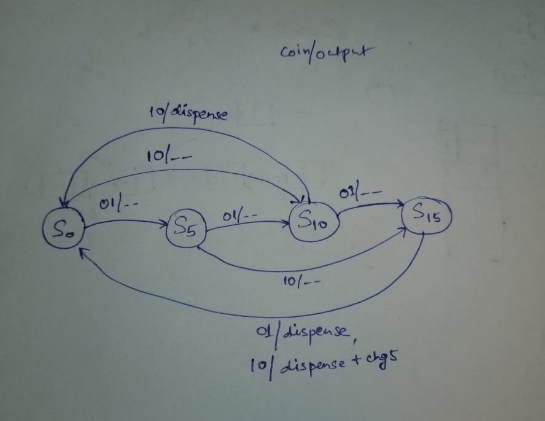 coin/output
10/dispense
10/--
01/--
01/--
01/--
S0
S5
S10
S15
10/--
01/dispense,
10/ dispense + chg5